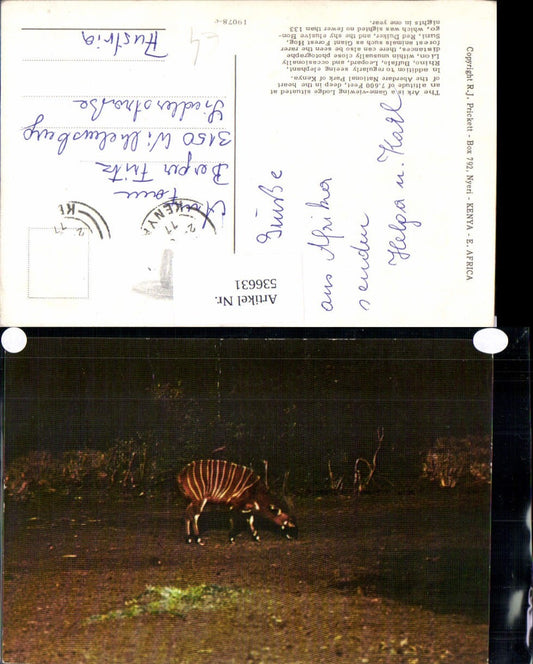 The Ark is a Game-viewing Lodge situated at
an altitude of 7,600 Feet, deep in the heart
of the Aberdare National Park of Kenya.
In addition to regularly seeing elephant,
Rhino, Buffalo, Leopard and occasionally
Lion, within unusually close photographic
distances, there can also be seen the rarer
forest animals such as Giant Forest Hog,
Suni, Red Duiker, and the shy elusive Bon-
go, which was sighted no fewer than 133
nights in one year.
19078-c
Copyright R.J. Prickett - Box 792, Nyeri - KENYA - E. AFRICA
Grüße
aus Afrika
senden
Helga u. Karl
Fam
Berger Fritz
3150 Wilhelmsburg
Austria
KENYA
Artikel Nr.
536631